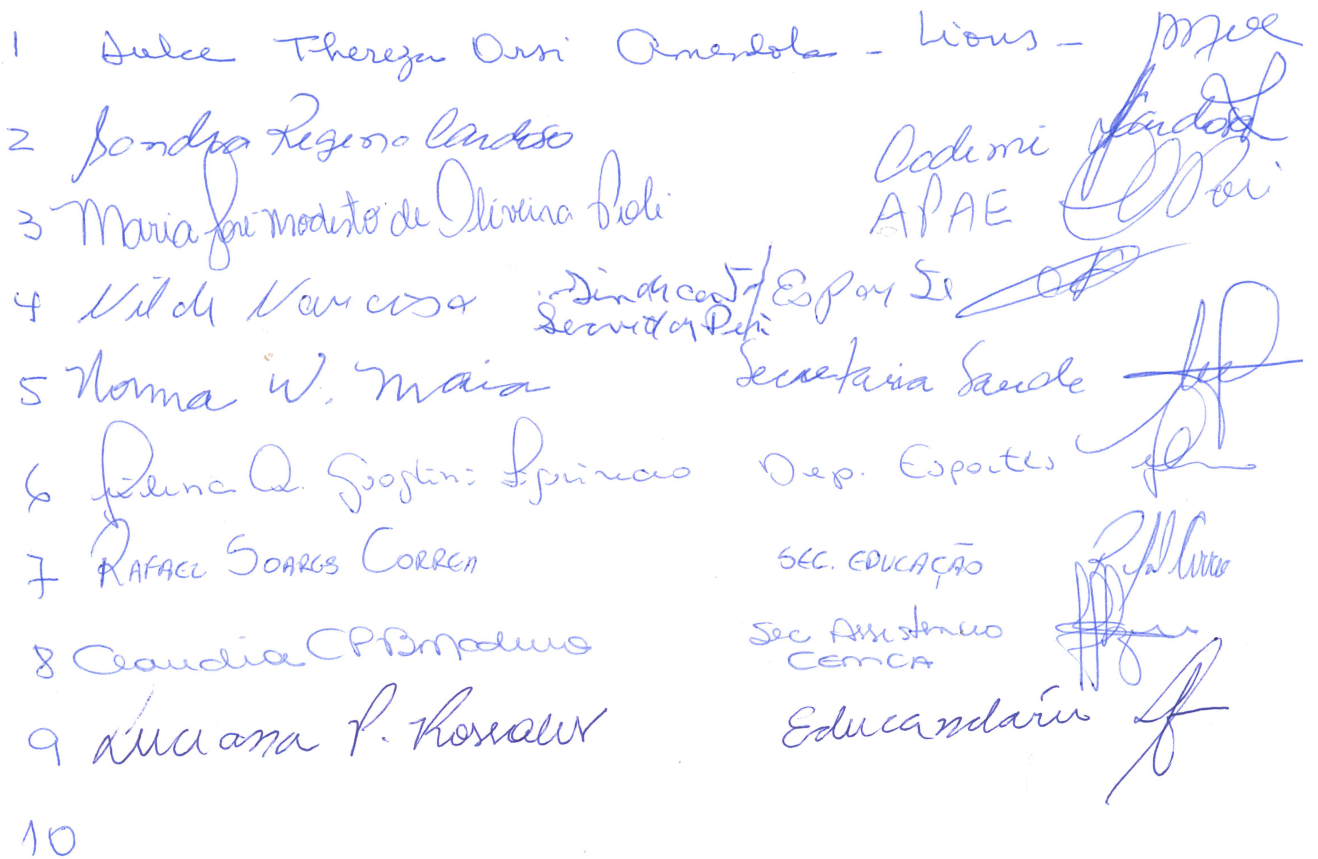 1 Dulce Thereza Orsi Amendola - Lions -
2 Sandra Regina Cardoso Cademi
3 Maria José Modesto de Oliveira Pioli APAE
4 Nilde Narcisa Sindicato / Esporte
Servidor
5 Norma W. Maia Secretaria Saude
6 Dep. Esportes
7 RAFAEL SOARES CORREA SEC. EDUCAÇÃO
8 Claudia Sec Assistencia
CEMCA
9 Luciana P. Educandário
10